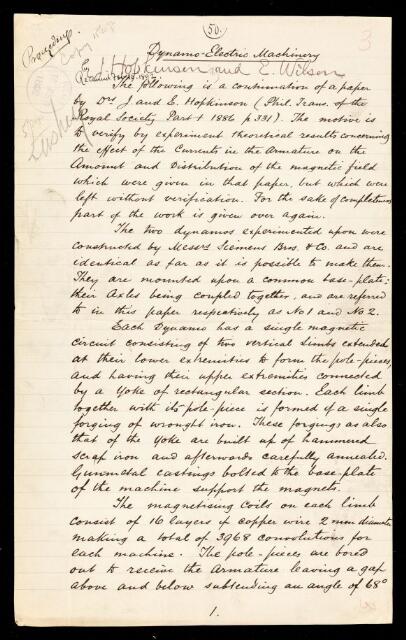 (50.)
3
Proceedings.
Copy
Dynamo-Electric Machinery
By J Hopkinson and E. Wilson
Received
The following is a continuation of a paper
by Drs J and E. Hopkinson (Phil. Trans. of the
Royal Society Part 1 1886 p 331). The motive is
to verify by experiment theoretical results concerning
the effect of the Currents in the Armature on the
Amount and Distribution of the magnetic field
which were given in that paper, but which were
left without verification. For the sake of completeness
part of the work is given over again.
The two dynamos experimented upon were
constructed by Messrs Siemens Bros. & Co. and are
identical as far as it is possible to make them.
They are mounted upon a common base-plate;
their Axles being coupled together, and are referred
to in this paper respectively as No 1 and No 2.
Each Dynamo has a single magnetic
circuit consisting of two vertical limbs extended
at their lower extremities to form the pole-pieces,
and having their upper extremities connected
by a yoke of rectangular section. Each limb
together with its pole-piece is formed of a single
forging of wrought iron. These forgings as also
that of the yoke are built up of hammered
scrap iron and afterwards carefully annealed.
Gunmetal castings bolted to the base-plate
of the machine support the magnets.
The magnetising coils on each limb
consist of 16 layers of copper wire 2 mm diameter
making a total of 3968 convolutions for
each machine. The pole-pieces are bored
out to receive the Armature leaving a gap
above and below subtending an angle of 68°
1.